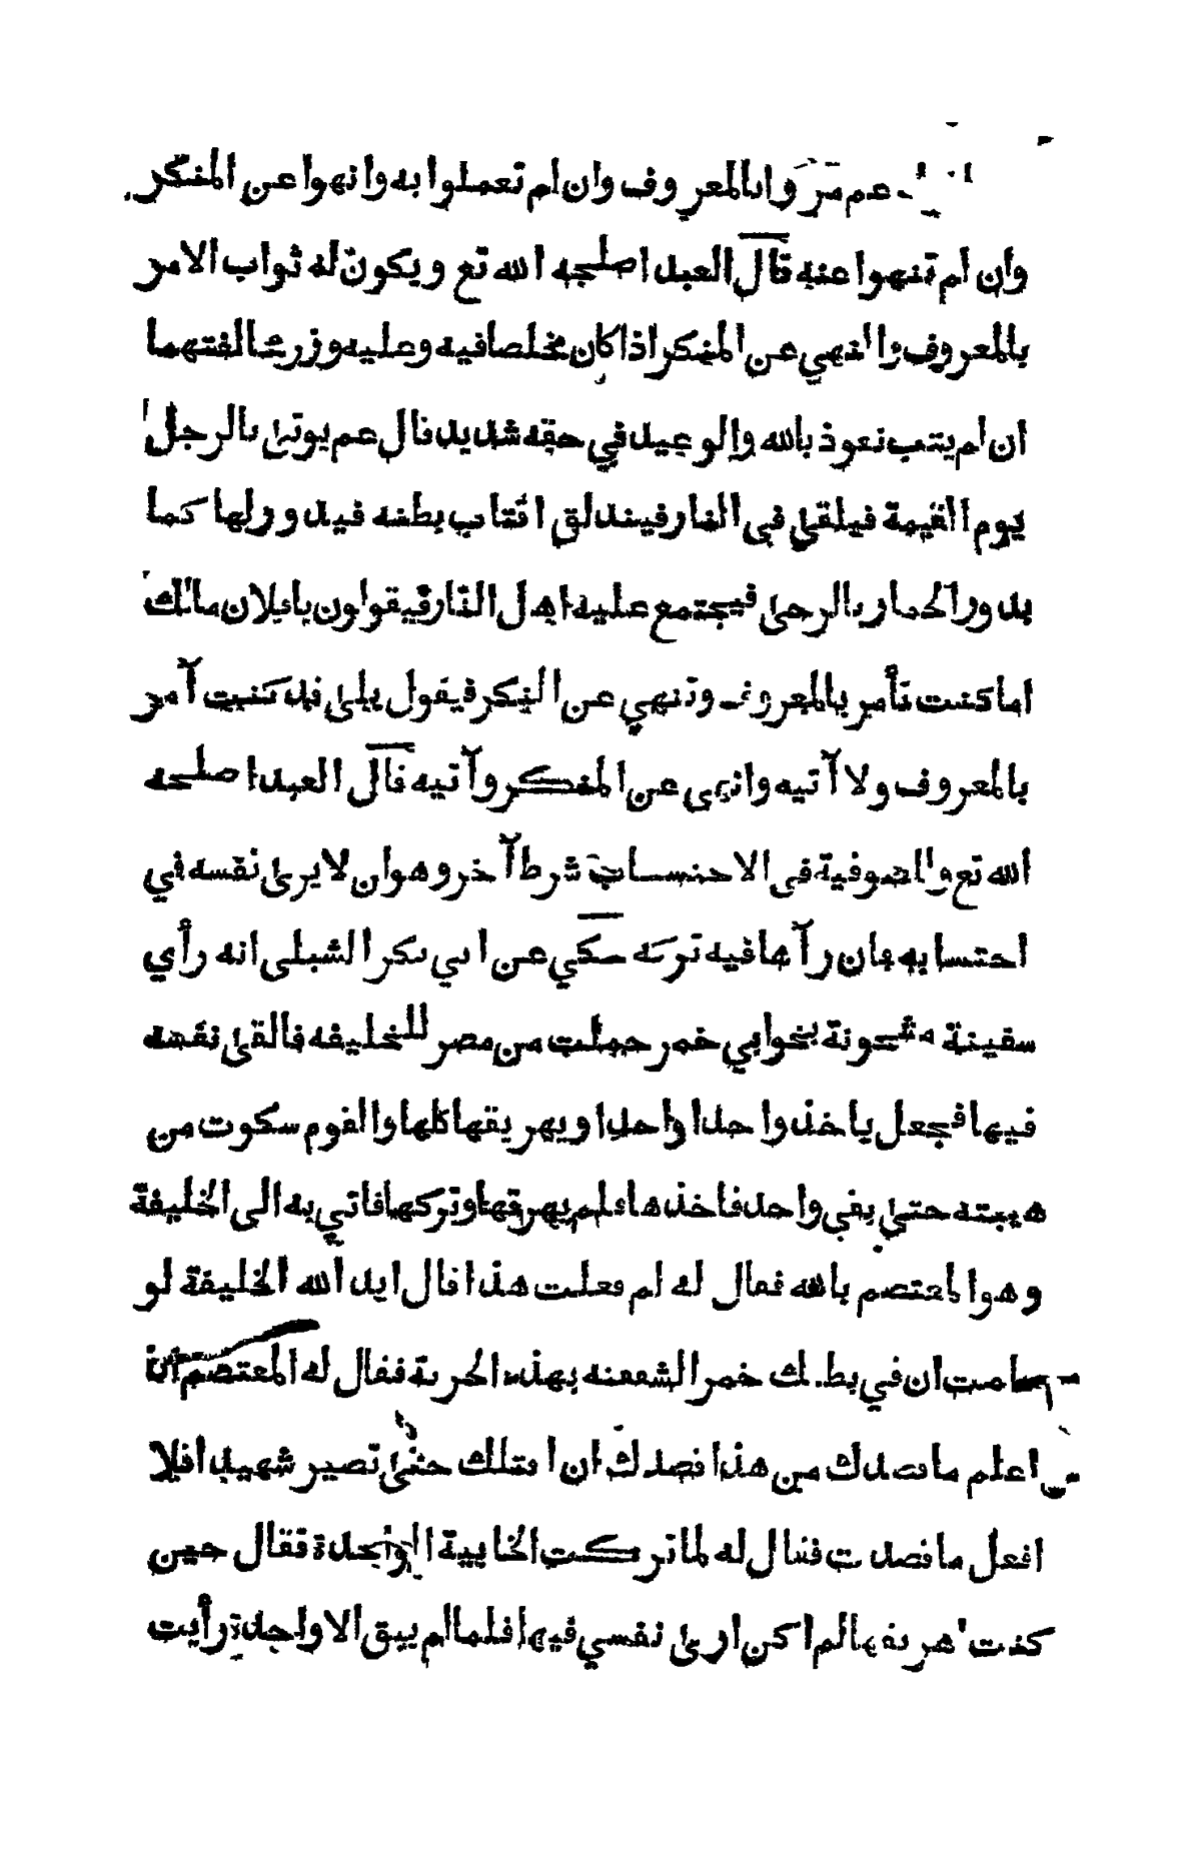 عم مروا بالمعروف وان لم تعملوا به وانهوا عن المنكر
وان لم تنهوا عنه قال العبد اصلحه الله تع ويكون له ثواب الامر
بالمعروف والنهي عن المنكر اذا كان مخلصا فيه وعليه وزر مخالفتهما
ان لم يتب نعوذ بالله والوعيد في حقه شديد قال عم يوتى بالرجل
يوم القيمة فيلقى فى النار فيندلق اقتاب بطنه فيدور بها كما
يدور الحمار بالرحى فيجتمع عليه اهل النار فيقولون يا فلان مالك
اما كنت تأمر بالمعروف وتنهي عن المنكر فيقول بلى قد كنت آمر
بالمعروف ولا آتيه وانهى عن المنكر وآتيه قال العبد اصلحه
الله تع والصوفية فى الاحتساب شرط آخر وهو ان لا يرى نفسه في
احتسابه فان رآها فيه تركه حكي عن ابي بكر الشبلى انه رأي
سفينة مشحونة بخوابي خمر حملت من مصر للخليفه فالقى نفسه
فيها فجعل ياخذ واحدا واحدا ويهريقها كلها والقوم سكوت من
هيبته حتى بقي واحد فاخذها فلم يهرقها وتركها فاتي به الى الخليفة
وهو المعتصم بالله فقال له لم فعلت هذا قال ايد الله الخليفة لو
علمت ان في بطنك خمر الشققنه بهذه الحربة فقال له المعتصم ان
اعلم ما قصدك من هذا قصدك ان اقتلك حتى تصير شهيدا فلا
افعل ما قصدت فقال له لما تركت الخابية الواحدة فقال حين
كنت اهريقها لم اكن ارى نفسي فيها فلما لم يبق الا واحدة رأيت